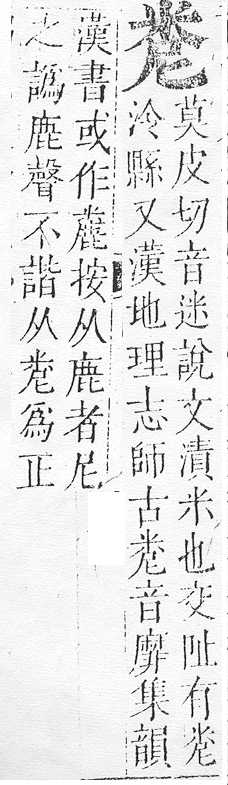 𥹆
莫皮切音迷說文漬米也交阯有𥹆
泠縣又漢地理志師古𥹆音靡集韻
漢書或作麊按从鹿者尼
之譌鹿聲不諧从𥹆爲正